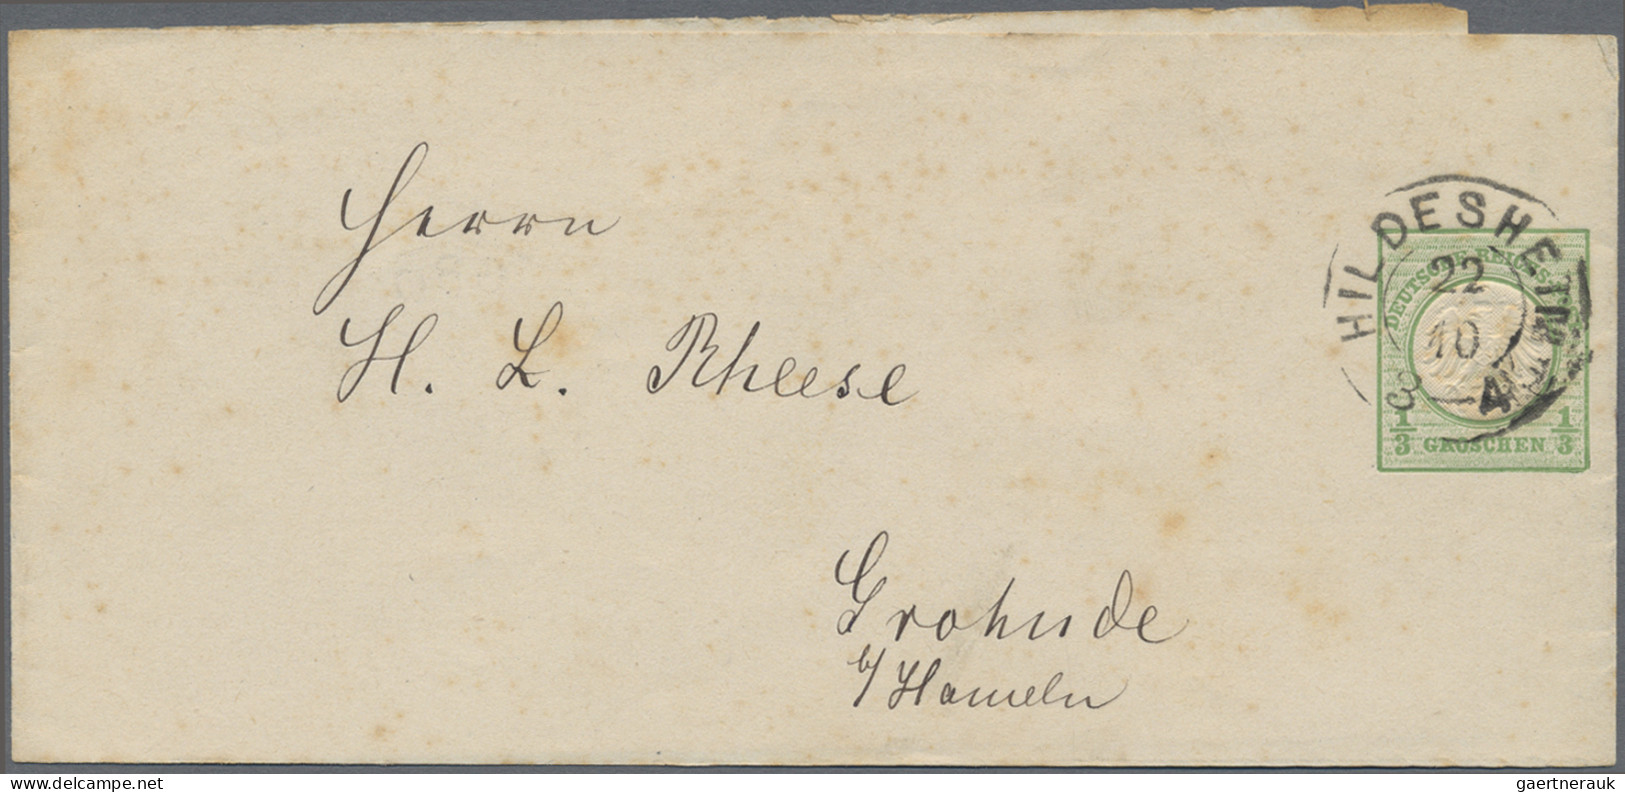 Herrn
H. L. Rheese
Grohnde
b/ Hameln
HILDESHEIM
22
10
4
DEUTSCHE REICHS
1/3 GROSCHEN 1/3
delcampe.net
gaertnerauk